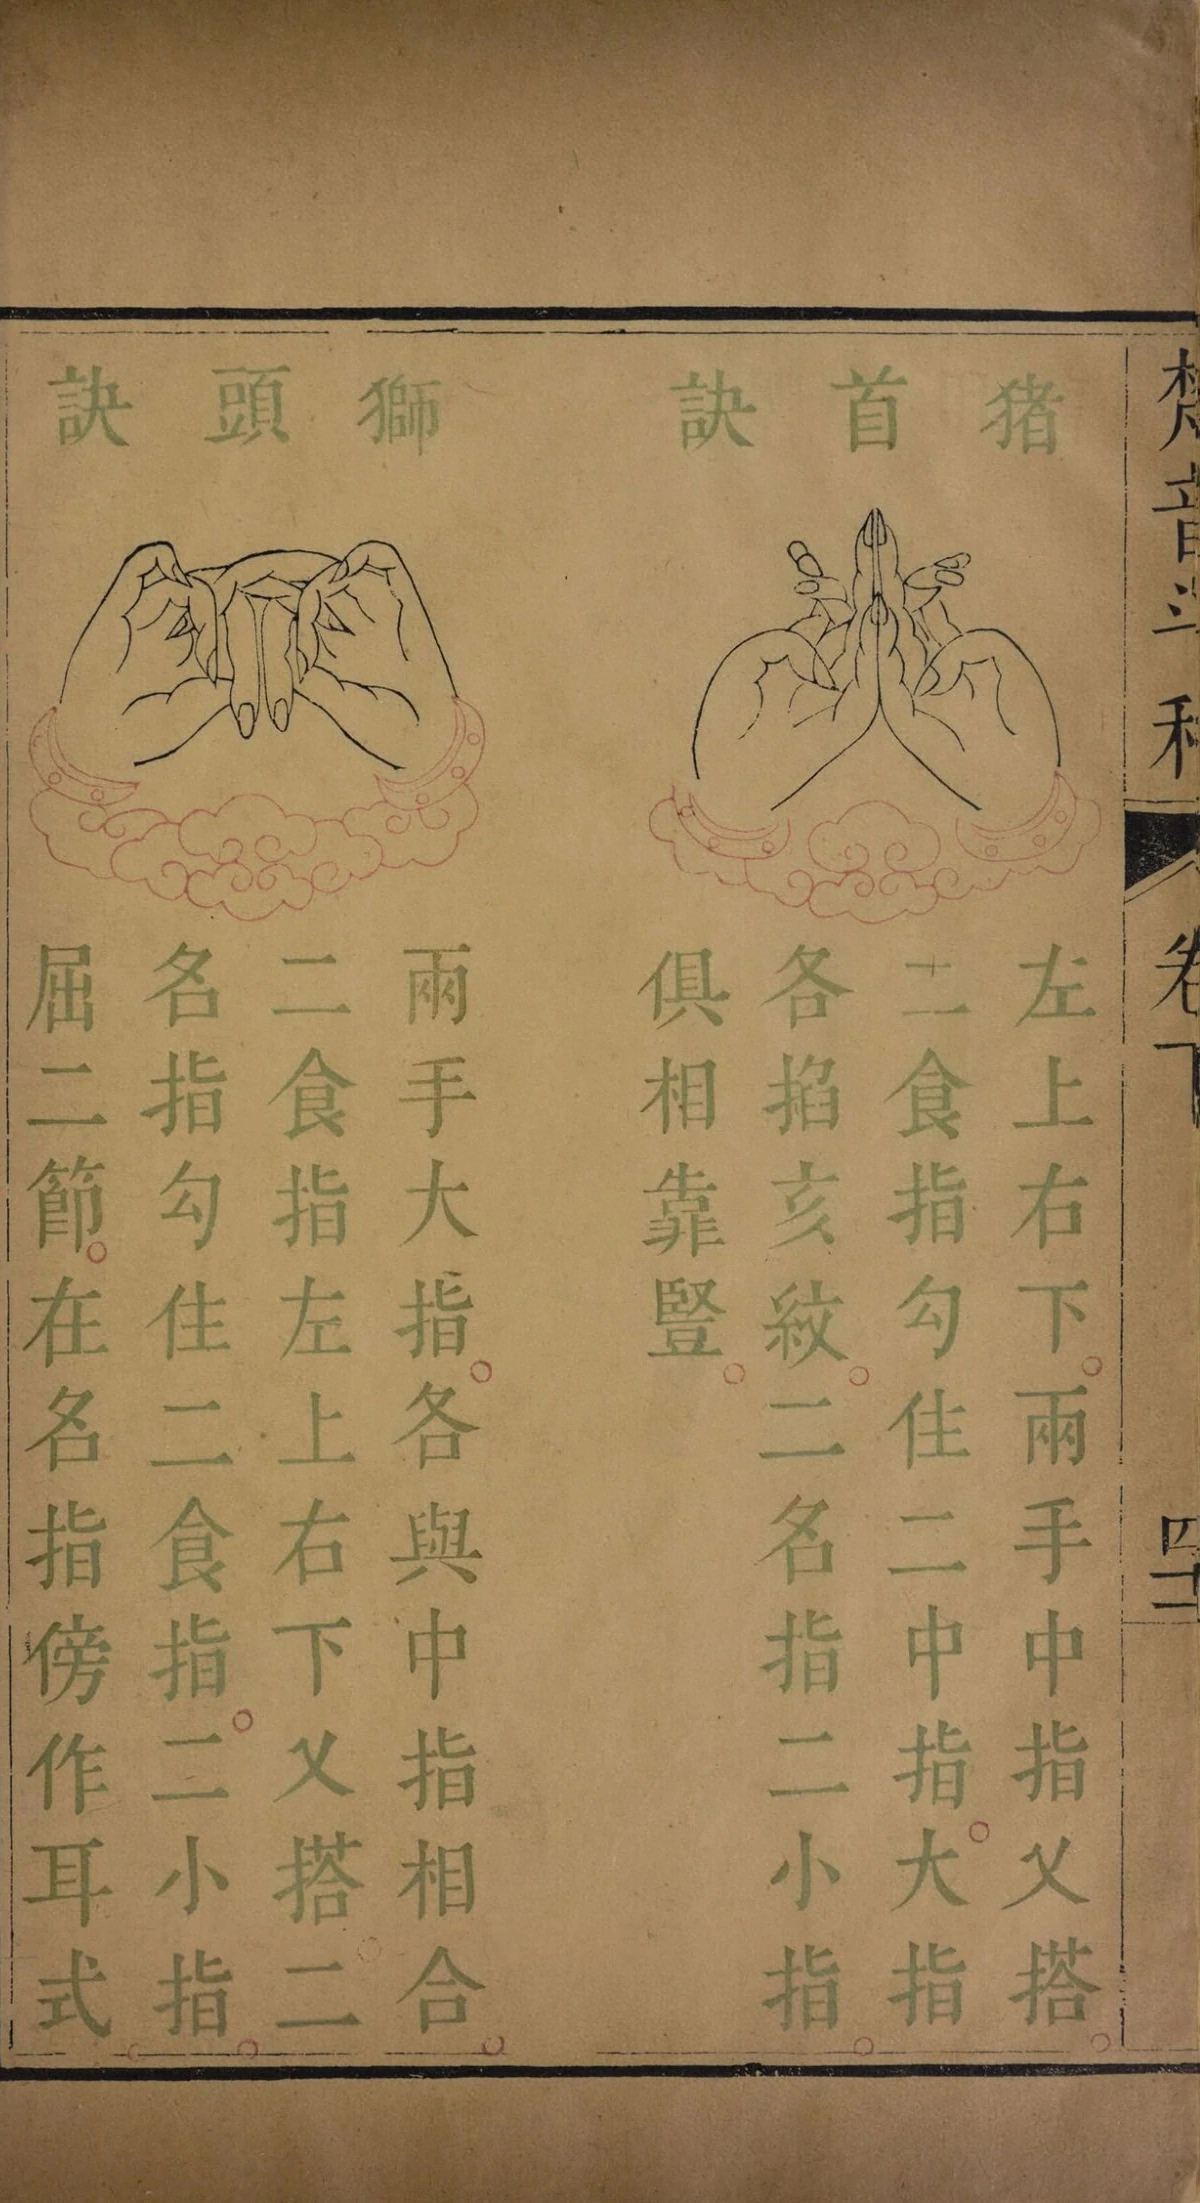 猪首訣
左上右下兩手中指乂搭
二食指勾住二中指大指
各掐亥紋二名指二小指
俱相靠豎
獅頭訣
兩手大指各與中指相合
二食指左上右下乂搭二
名指勾住二食指二小指
屈二節在名指傍作耳式
梵音斗科
卷下